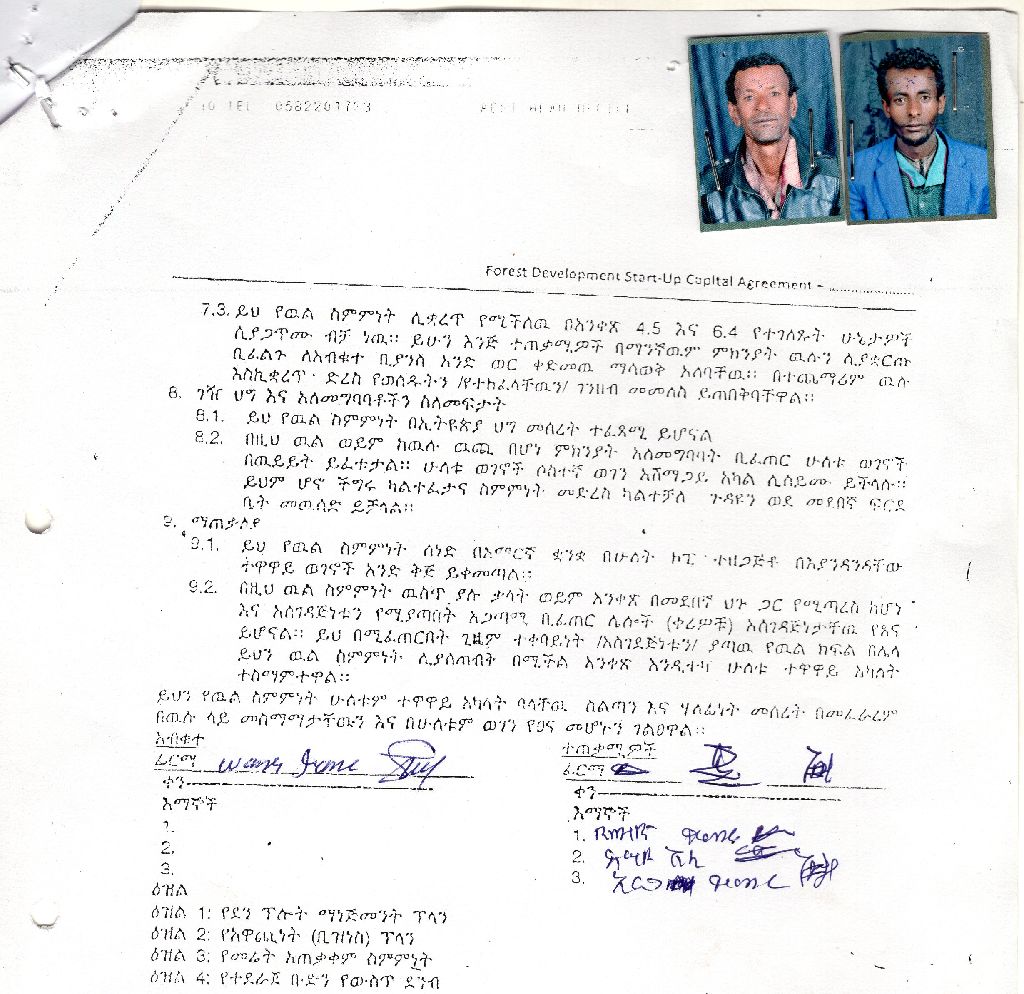 TEL 0582201723
Forest Development Start-Up Capital Agreement – ......................
7.3. ይህ የዉል ስምምነት ሊቋረጥ የሚችለዉ በአንቀጽ 4.5 እና 6.4 የተገለጹት ሁኔታዎች
ሲያጋጥሙ ብቻ ነዉ፡፡ ይሁን እንጅ ተጠቃሚዎች በማንኛዉም ምክንያት ዉሉን ሊያቋርጡ
ቢፈልጉ ለአብቁተ ቢያንስ አንድ ወር ቀድመዉ ማሳወቅ አለባቸዉ፡፡ በተጨማሪም ዉሉ
እስኪቋረጥ ድረስ የወሰዱትን /የተከፈላቸዉን/ ገንዘብ መመለስ ይጠበቅባቸዋል፡፡
8. ገዥ ህግ እና አለመግባባቶችን ስለመፍታት
8.1. ይህ የዉል ስምምነት በኢትዮጵያ ህግ መሰረት ተፈጻሚ ይሆናል
8.2. በዚህ ዉል ወይም ከዉሉ ዉጪ በሆነ ምክንያት አለመግባባት ቢፈጠር ሁለቱ ወገኖች
በዉይይት ይፈቱታል፡፡ ሁለቱ ወገኖች ሶስተኛ ወገን አሸማጋይ አካል ሊሰይሙ ይችላሉ፡፡
ይህም ሆኖ ችግሩ ካልተፈታና ስምምነት መድረስ ካልተቻለ ጉዳዩን ወደ መደበኛ ፍርደ
ቤት መዉሰድ ይቻላል፡፡
9. ማጠቃለያ
9.1. ይህ የዉል ስምምነት ሰነድ በአማርኛ ቋንቋ በሁለት ኮፒ ተዘጋጅቶ በእያንዳንዳቸው
ተዋዋይ ወገኖች አንድ ቅጅ ይቀመጣል፡፡
9.2. በዚህ ዉል ስምምነት ዉስጥ ያሉ ቃላት ወይም አንቀጽ በመደበኛ ህጉ ጋር የሚጣረስ ከሆነ
እና አስገዳጅነቱን የሚያጣበት አጋጣሚ ቢፈጠር ሌሎች (ቀሪዎቹ) አስገዳጅነታቸዉ የጸና
ይሆናል፡፡ ይህ በሚፈጠርበት ጊዜም ተቀባይነት /አስገዳጅነቱን/ ያጣዉ የዉል ክፍል በሌላ
ይህን ዉል ስምምነት ሊያስጠብቅ በሚችል አንቀጽ እንዲተካ ሁለቱ ተዋዋይ አካላት
ተስማምተዋል፡፡
ይህን የዉል ስምምነት ሁለቱም ተዋዋይ አካላት ባላቸዉ ስልጣን እና ሃላፊነት መሰረት በመፈራረም
በዉሉ ላይ መስማማታቸዉን እና በሁለቱም ወገን የጸና መሆኑን ገልፀዋል፡፡
አብቁተ
ፊርማ
ቀን
እማኞች
1.
2.
3.
ተጠቃሚዎች
ፊርማ
ቀን
እማኞች
1.
2.
3.
ዕዝል
ዕዝል 1: የደን ፕሎት ማነጅመንት ፕላን
ዕዝል 2: የአዋጪነት (ቢዝነስ) ፕላን
ዕዝል 3: የመሬት አጠቃቀም ስምምኒት
ዕዝል 4: የተደራጀ ቡድን የውስጥ ደንብ